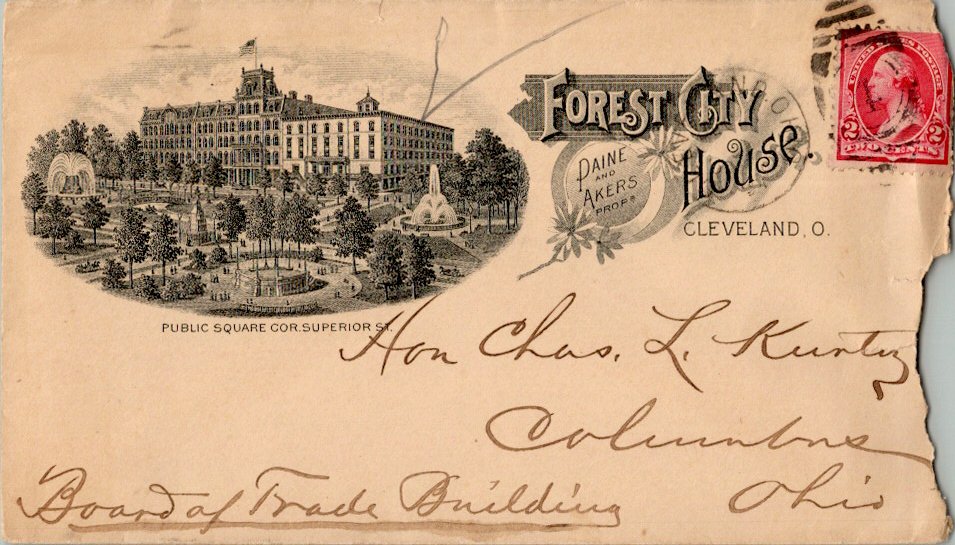 FOREST CITY
HOUSE.
PAINE
AND
AKERS
PROPS
CLEVELAND, O.
PUBLIC SQUARE COR. SUPERIOR ST.
UNITED STATES POSTAGE
2 2
Hon Chas. L. Kurtz
Columbus
Ohio
Board of Trade Building